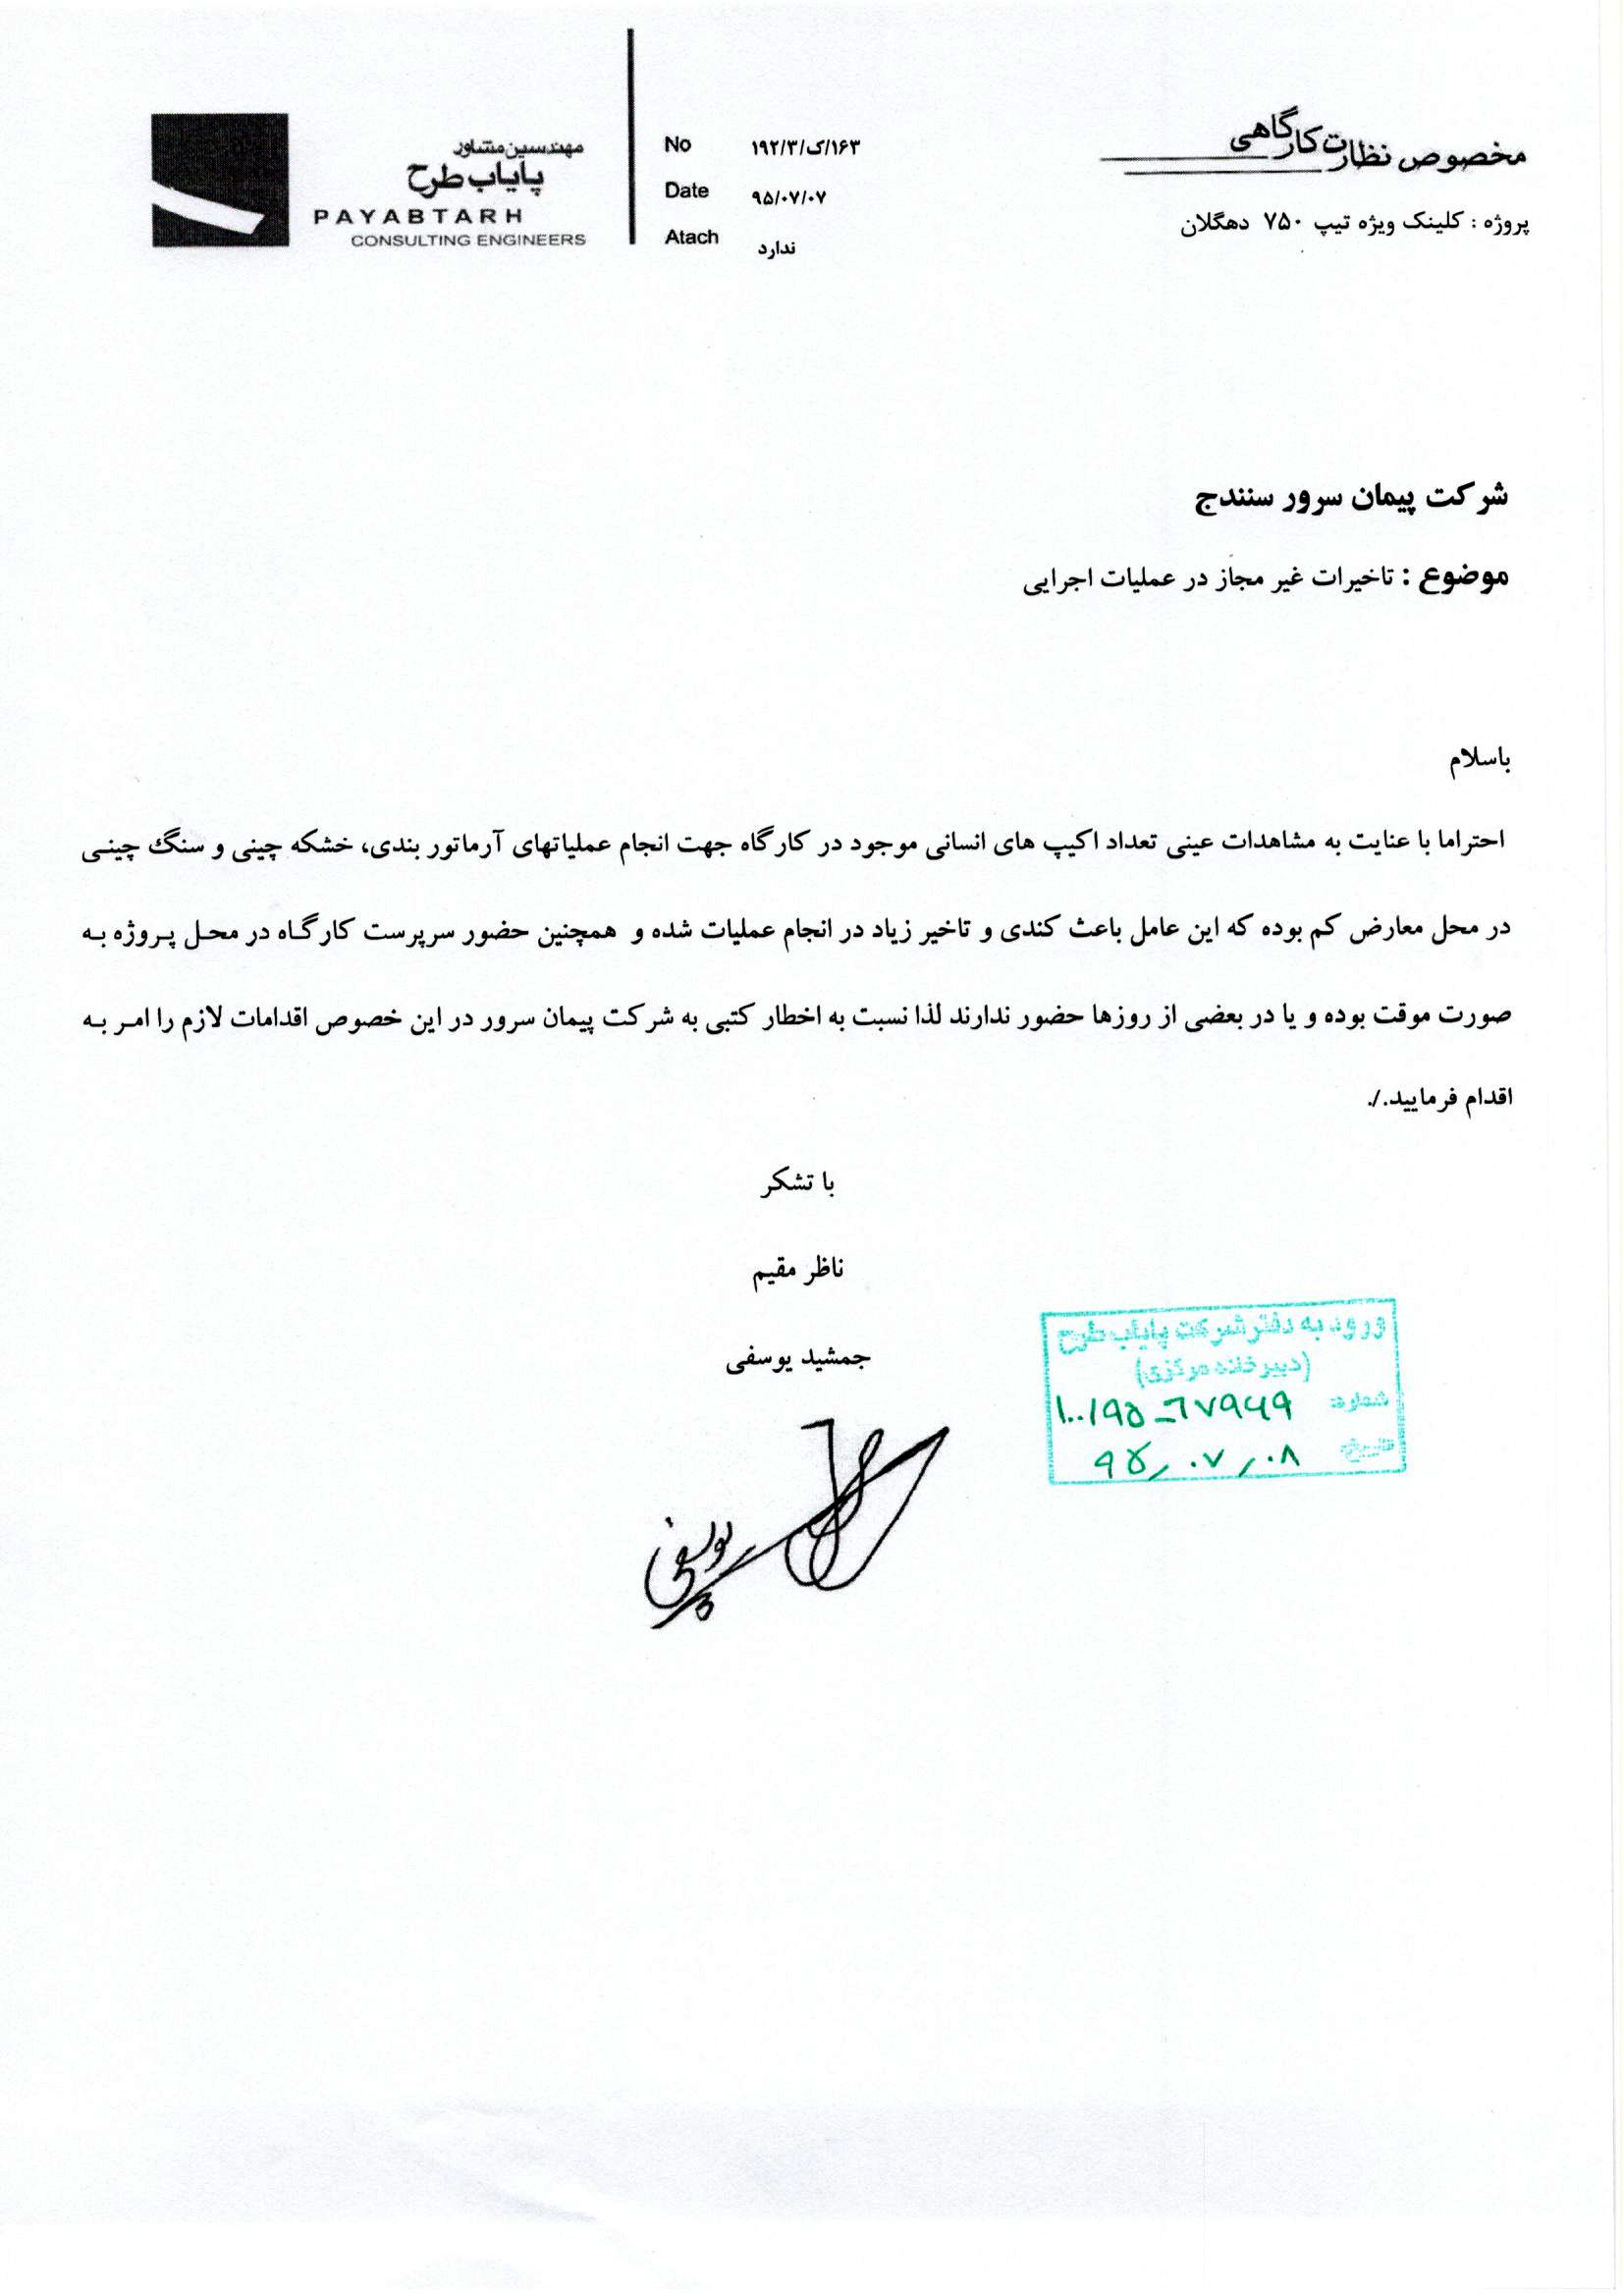 مخصوص نظارت کارگاهی
پروژه : کلینک ویژه تیپ ۷۵۰ دهگلان
No ۱۹۲/۳/ک/۱۶۳
Date ۹۵/۰۷/۰۷
Atach ندارد
مهندسین مشاور
پایاب طرح
PAYABTARH
CONSULTING ENGINEERS
شرکت پیمان سرور سنندج
موضوع : تاخیرات غیر مجاز در عملیات اجرایی
باسلام
احتراما با عنایت به مشاهدات عینی تعداد اکیپ های انسانی موجود در کارگاه جهت انجام عملیاتهای آرماتور بندی، خشکه چینی و سنگ چینی
در محل معارض کم بوده که این عامل باعث کندی و تاخیر زیاد در انجام عملیات شده و همچنین حضور سرپرست کارگاه در محل پروژه به
صورت موقت بوده و یا در بعضی از روزها حضور ندارند لذا نسبت به اخطار کتبی به شرکت پیمان سرور در این خصوص اقدامات لازم را امر به
اقدام فرمایید./.
با تشکر
ناظر مقیم
جمشید یوسفی
ورود به دفتر شرکت پایاب طرح
(دبیرخانه مرکزی)
شماره:
تاریخ: ۹۵/۰۷/۰۸
یوسفی